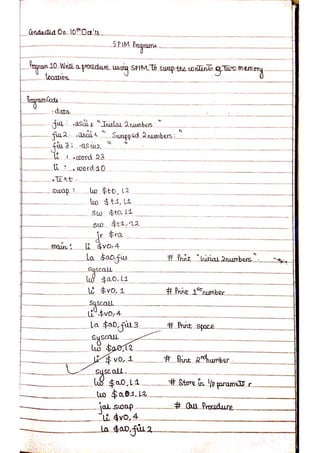 Conducted On: 10th Oct'
SPIM Programs
Program 10. Write a procedure using SPIM. To swap the contents of two memory
location
Program Code:
.data
.asciiz "Initial 2 numbers:"
.asciiz "Swapped 2 numbers:"
.asciiz " "
.word 23
.word 10
.text
swap: lw $t0, l2
lw $t1, l1
sw $t0, l1
sw $t1, l2
jr $ra
main: li $v0, 4
la $a0, # Print "Initial 2numbers".
syscall
lw $a0, l1
li $v0, 1 # Print 1st number
syscall
li $v0, 4
la $a0, # Print space
syscall
lw $a0, l2
li $v0, 1 # Print 2nd number
syscall.
lw $a0, l1 # Store in
lw l2
jal swap # Call Procedure
li $v0, 4
la $a0,